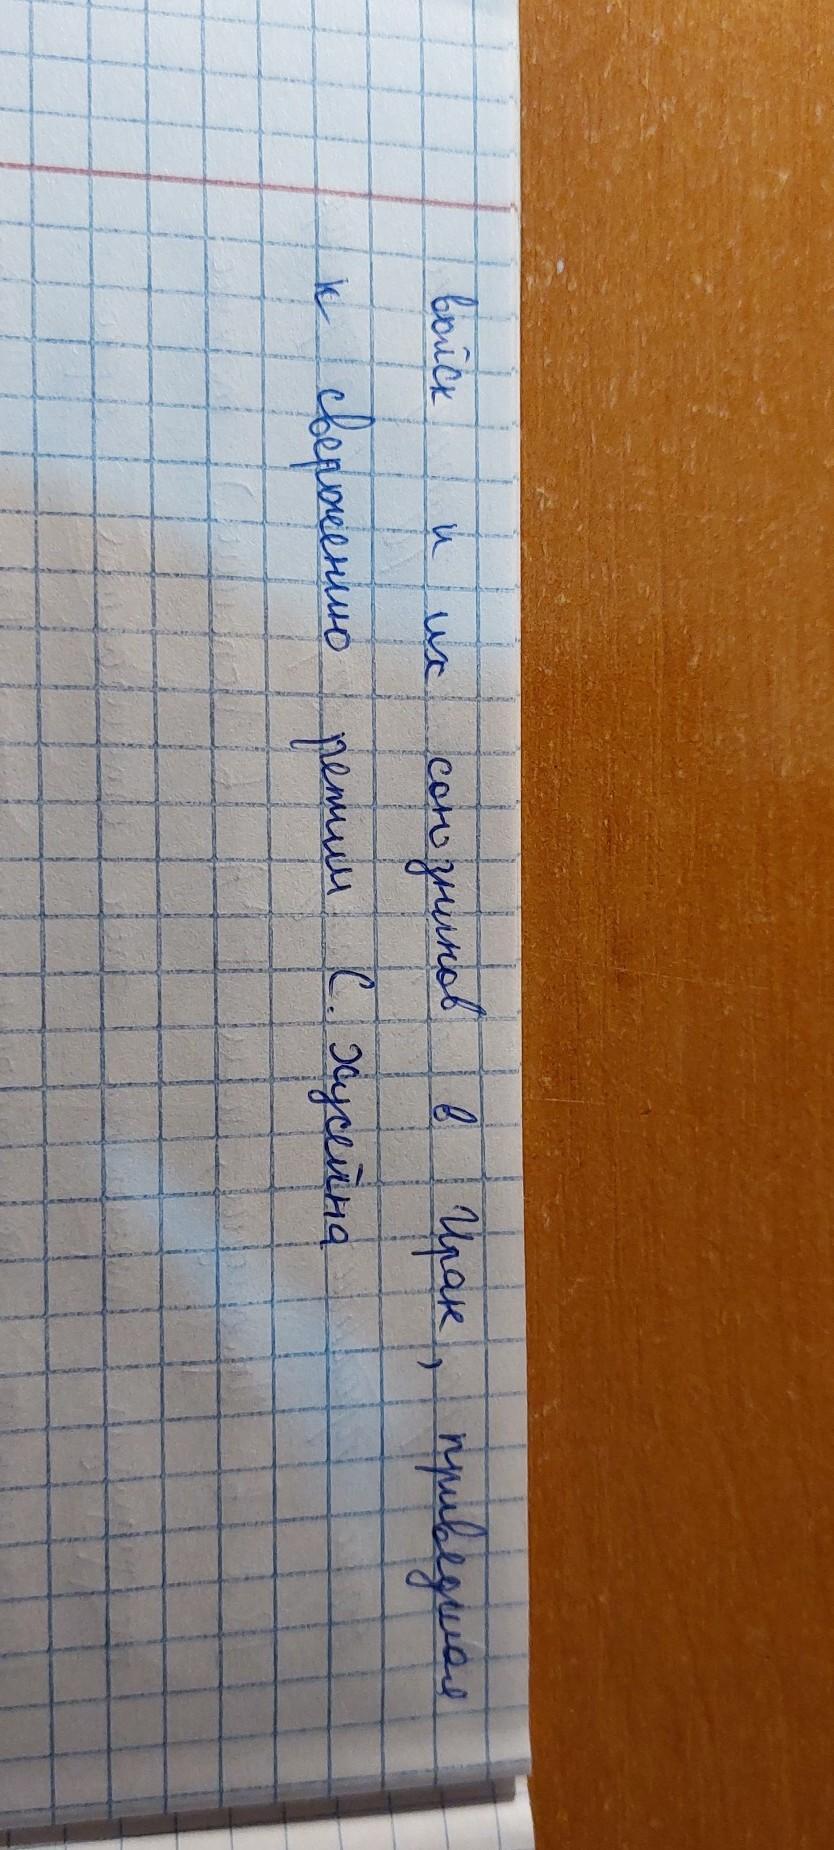 войск и их союзников в Ирак, приведшая
к свержению режим С. Хусейна